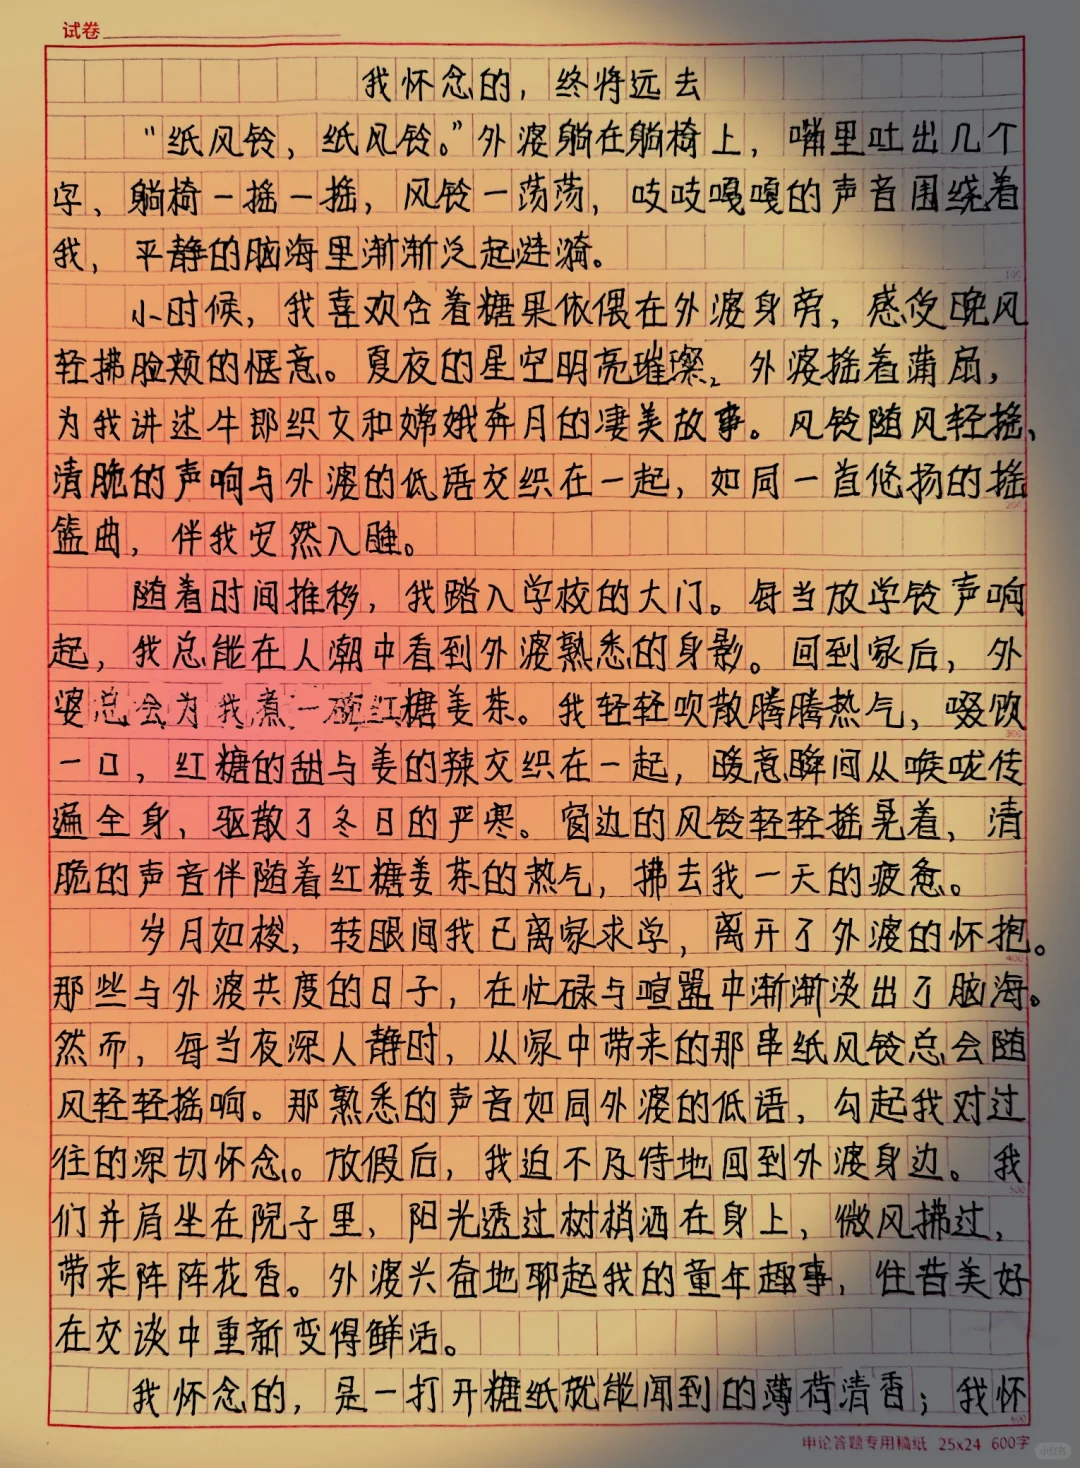 试卷
我怀念的，终将远去
“纸风铃，纸风铃。”外婆躺在躺椅上，嘴里吐出几个
字，躺椅一摇一摇，风铃一荡荡，吱吱嘎嘎的声音围绕着
我，平静的脑海里渐渐泛起涟漪。
小时候，我喜欢含着糖果依偎在外婆身旁，感受晚风
轻拂脸颊的惬意。夏夜的星空明亮璀璨，外婆摇着蒲扇，
为我讲述牛郎织女和嫦娥奔月的凄美故事。风铃随风轻摇、
清脆的声响与外婆的低语交织在一起，如同一首悠扬的摇
篮曲，伴我安然入睡。
随着时间推移，我踏入学校的大门。每当放学铃声响
起，我总能在人潮中看到外婆熟悉的身影。回到家后，外
婆总会为我煮一碗红糖姜茶。我轻轻吹散腾腾热气，啜饮
一口，红糖的甜与姜的辣交织在一起，暖意瞬间从喉咙传
遍全身、驱散了冬日的严寒。窗边的风铃轻轻摇晃着，清
脆的声音伴随着红糖姜茶的热气，拂去我一天的疲惫。
岁月如梭，转眼间我已离家求学，离开了外婆的怀抱。
那些与外婆共度的日子，在忙碌与喧嚣中渐渐淡出了脑海。
然而，每当夜深人静时，从家中带来的那串纸风铃总会随
风轻轻摇响。那熟悉的声音如同外婆的低语，勾起我对过
往的深切怀念。放假后，我迫不及待地回到外婆身边。我
们并肩坐在院子里，阳光透过树梢洒在身上，微风拂过，
带来阵阵花香。外婆兴奋地聊起我的童年趣事，往昔美好
在交谈中重新变得鲜活。
我怀念的，是一打开糖纸就能闻到的薄荷清香；我怀
申论答题专用稿纸 25x24 600字
小红书